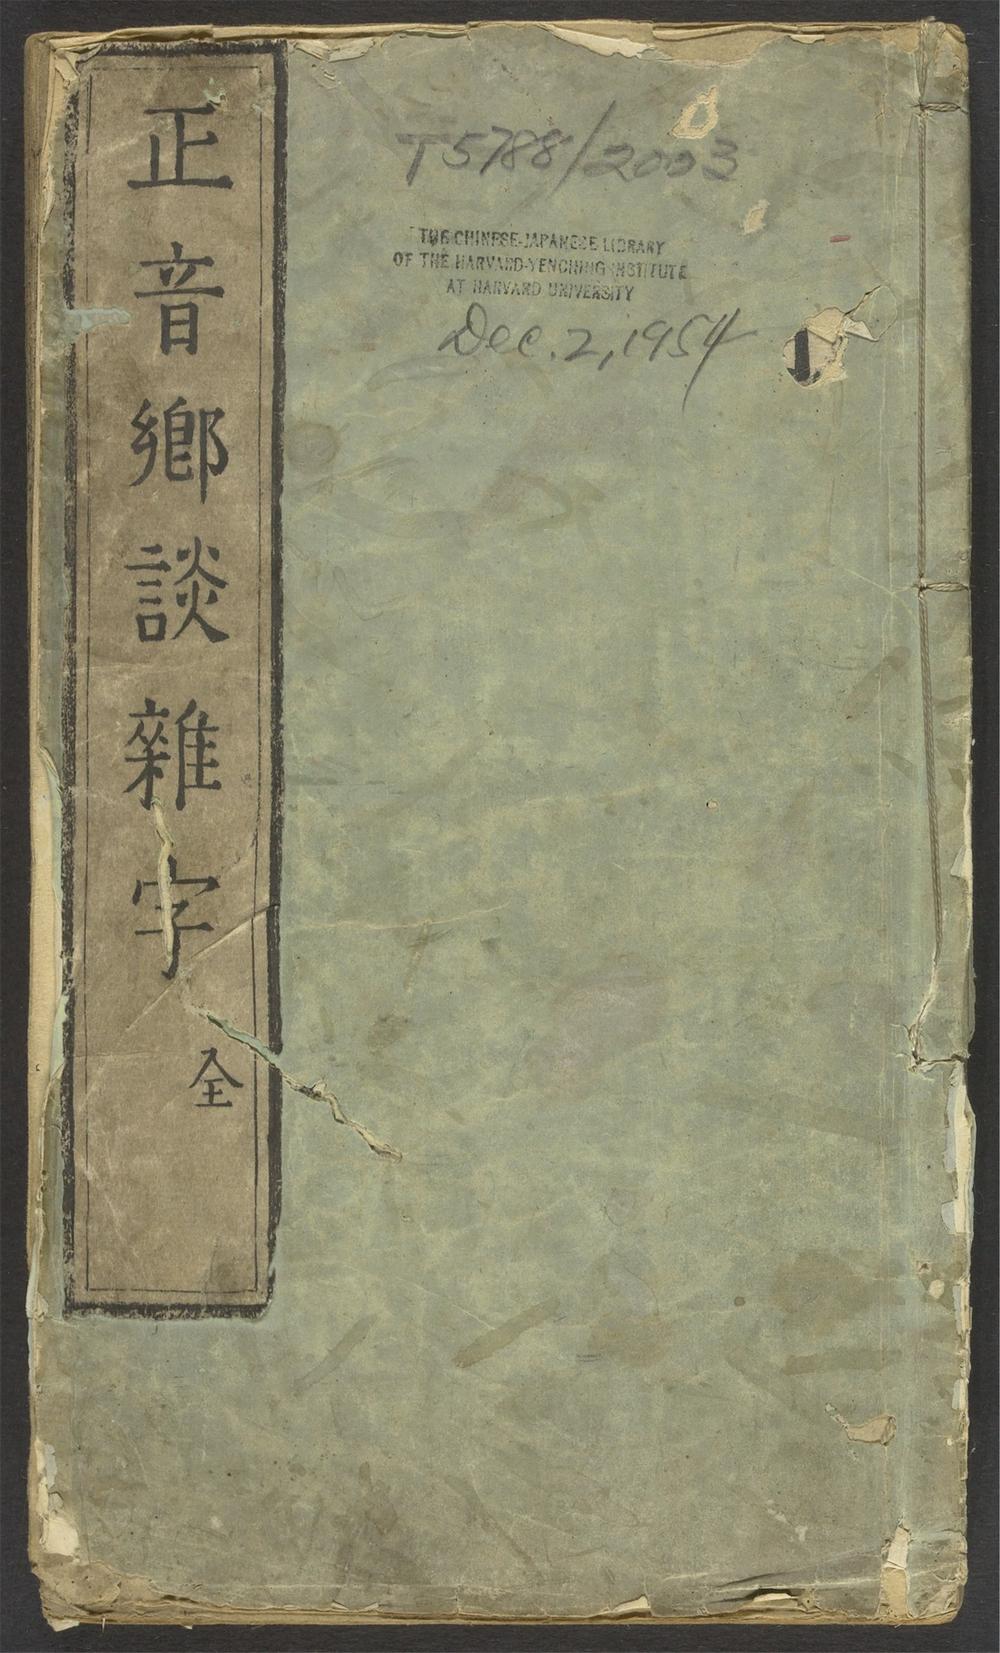 正音鄉談雜字
全
T5788/2003
THE CHINESE-JAPANESE LIBRARY
OF THE HARVARD-YENCHING INSTITUTE
AT HARVARD UNIVERSITY
Dec. 2, 1954